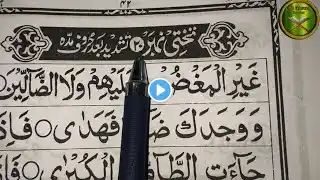 ۴۲
تختی نمبر ۲۰ تشدید بعد حروف مدہ
غَيْرِ الْمَغْضُ عَلَيْهِمْ وَلَا الضَّالِّيْنَ
وَوَجَدَكَ ضَ فَهَدٰى ○ فَاِذَ
جَآءَتِ الطَّآ الْكُبْرٰى ○ فَ